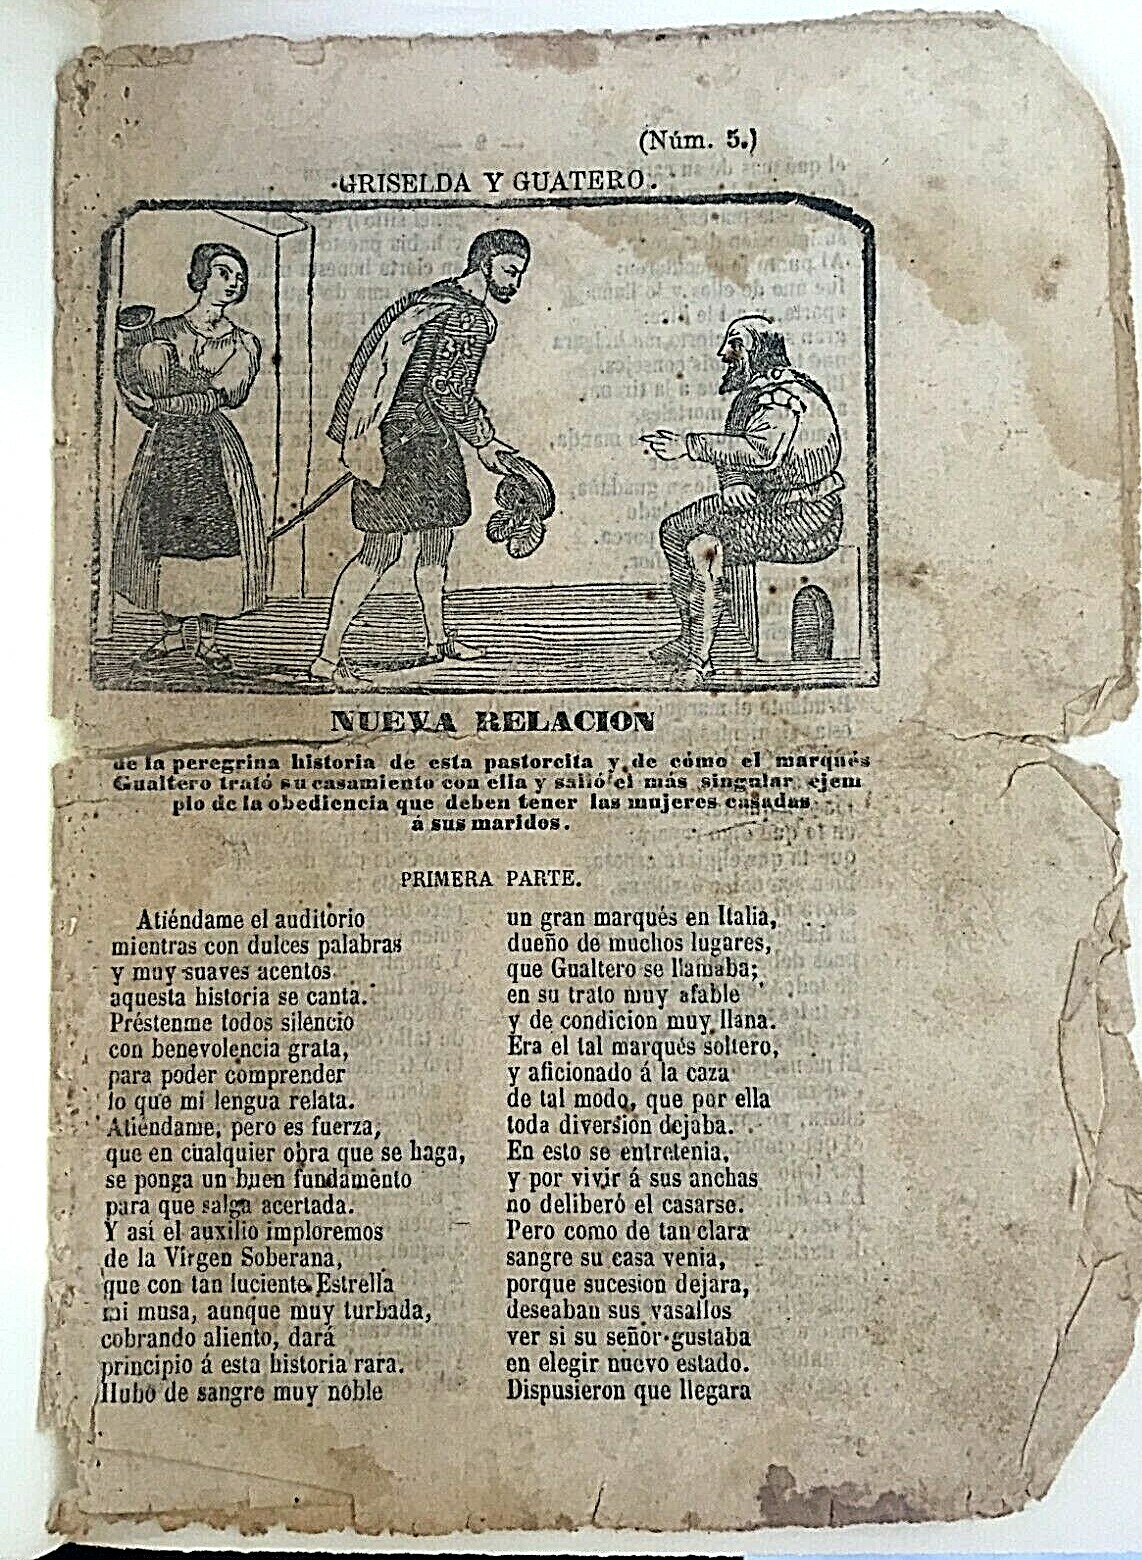 (Núm. 5.)
GRISELDA Y GUATERO.
NUEVA RELACION
de la peregrina historia de esta pastorcita y de cómo el marqués
Gualtero trató su casamiento con ella y salió el más singular ejem
plo de la obediencia que deben tener las mujeres casadas
á sus maridos.
PRIMERA PARTE.
Atiéndame el auditorio
mientras con dulces palabras
y muy suaves acentos
aquesta historia se canta.
Préstenme todos silencio
con benevolencia grata,
para poder comprender
lo que mi lengua relata.
Atiéndame, pero es fuerza,
que en cualquier obra que se haga,
se ponga un buen fundamento
para que salga acertada.
Y así el auxilio imploremos
de la Vírgen Soberana,
que con tan luciente Estrella
mi musa, aunque muy turbada,
cobrando aliento, dará
principio á esta historia rara.
Hubo de sangre muy noble
un gran marqués en Italia,
dueño de muchos lugares,
que Gualtero se llamaba;
en su trato muy afable
y de condicion muy llana.
Era el tal marqués soltero,
y aficionado á la caza
de tal modo, que por ella
toda diversion dejaba.
En esto se entretenia,
y por vivir á sus anchas
no deliberó el casarse.
Pero como de tan clara
sangre su casa venia,
porque sucesion dejara,
deseaban sus vasallos
ver si su señor gustaba
en elegir nuevo estado.
Dispusieron que llegara